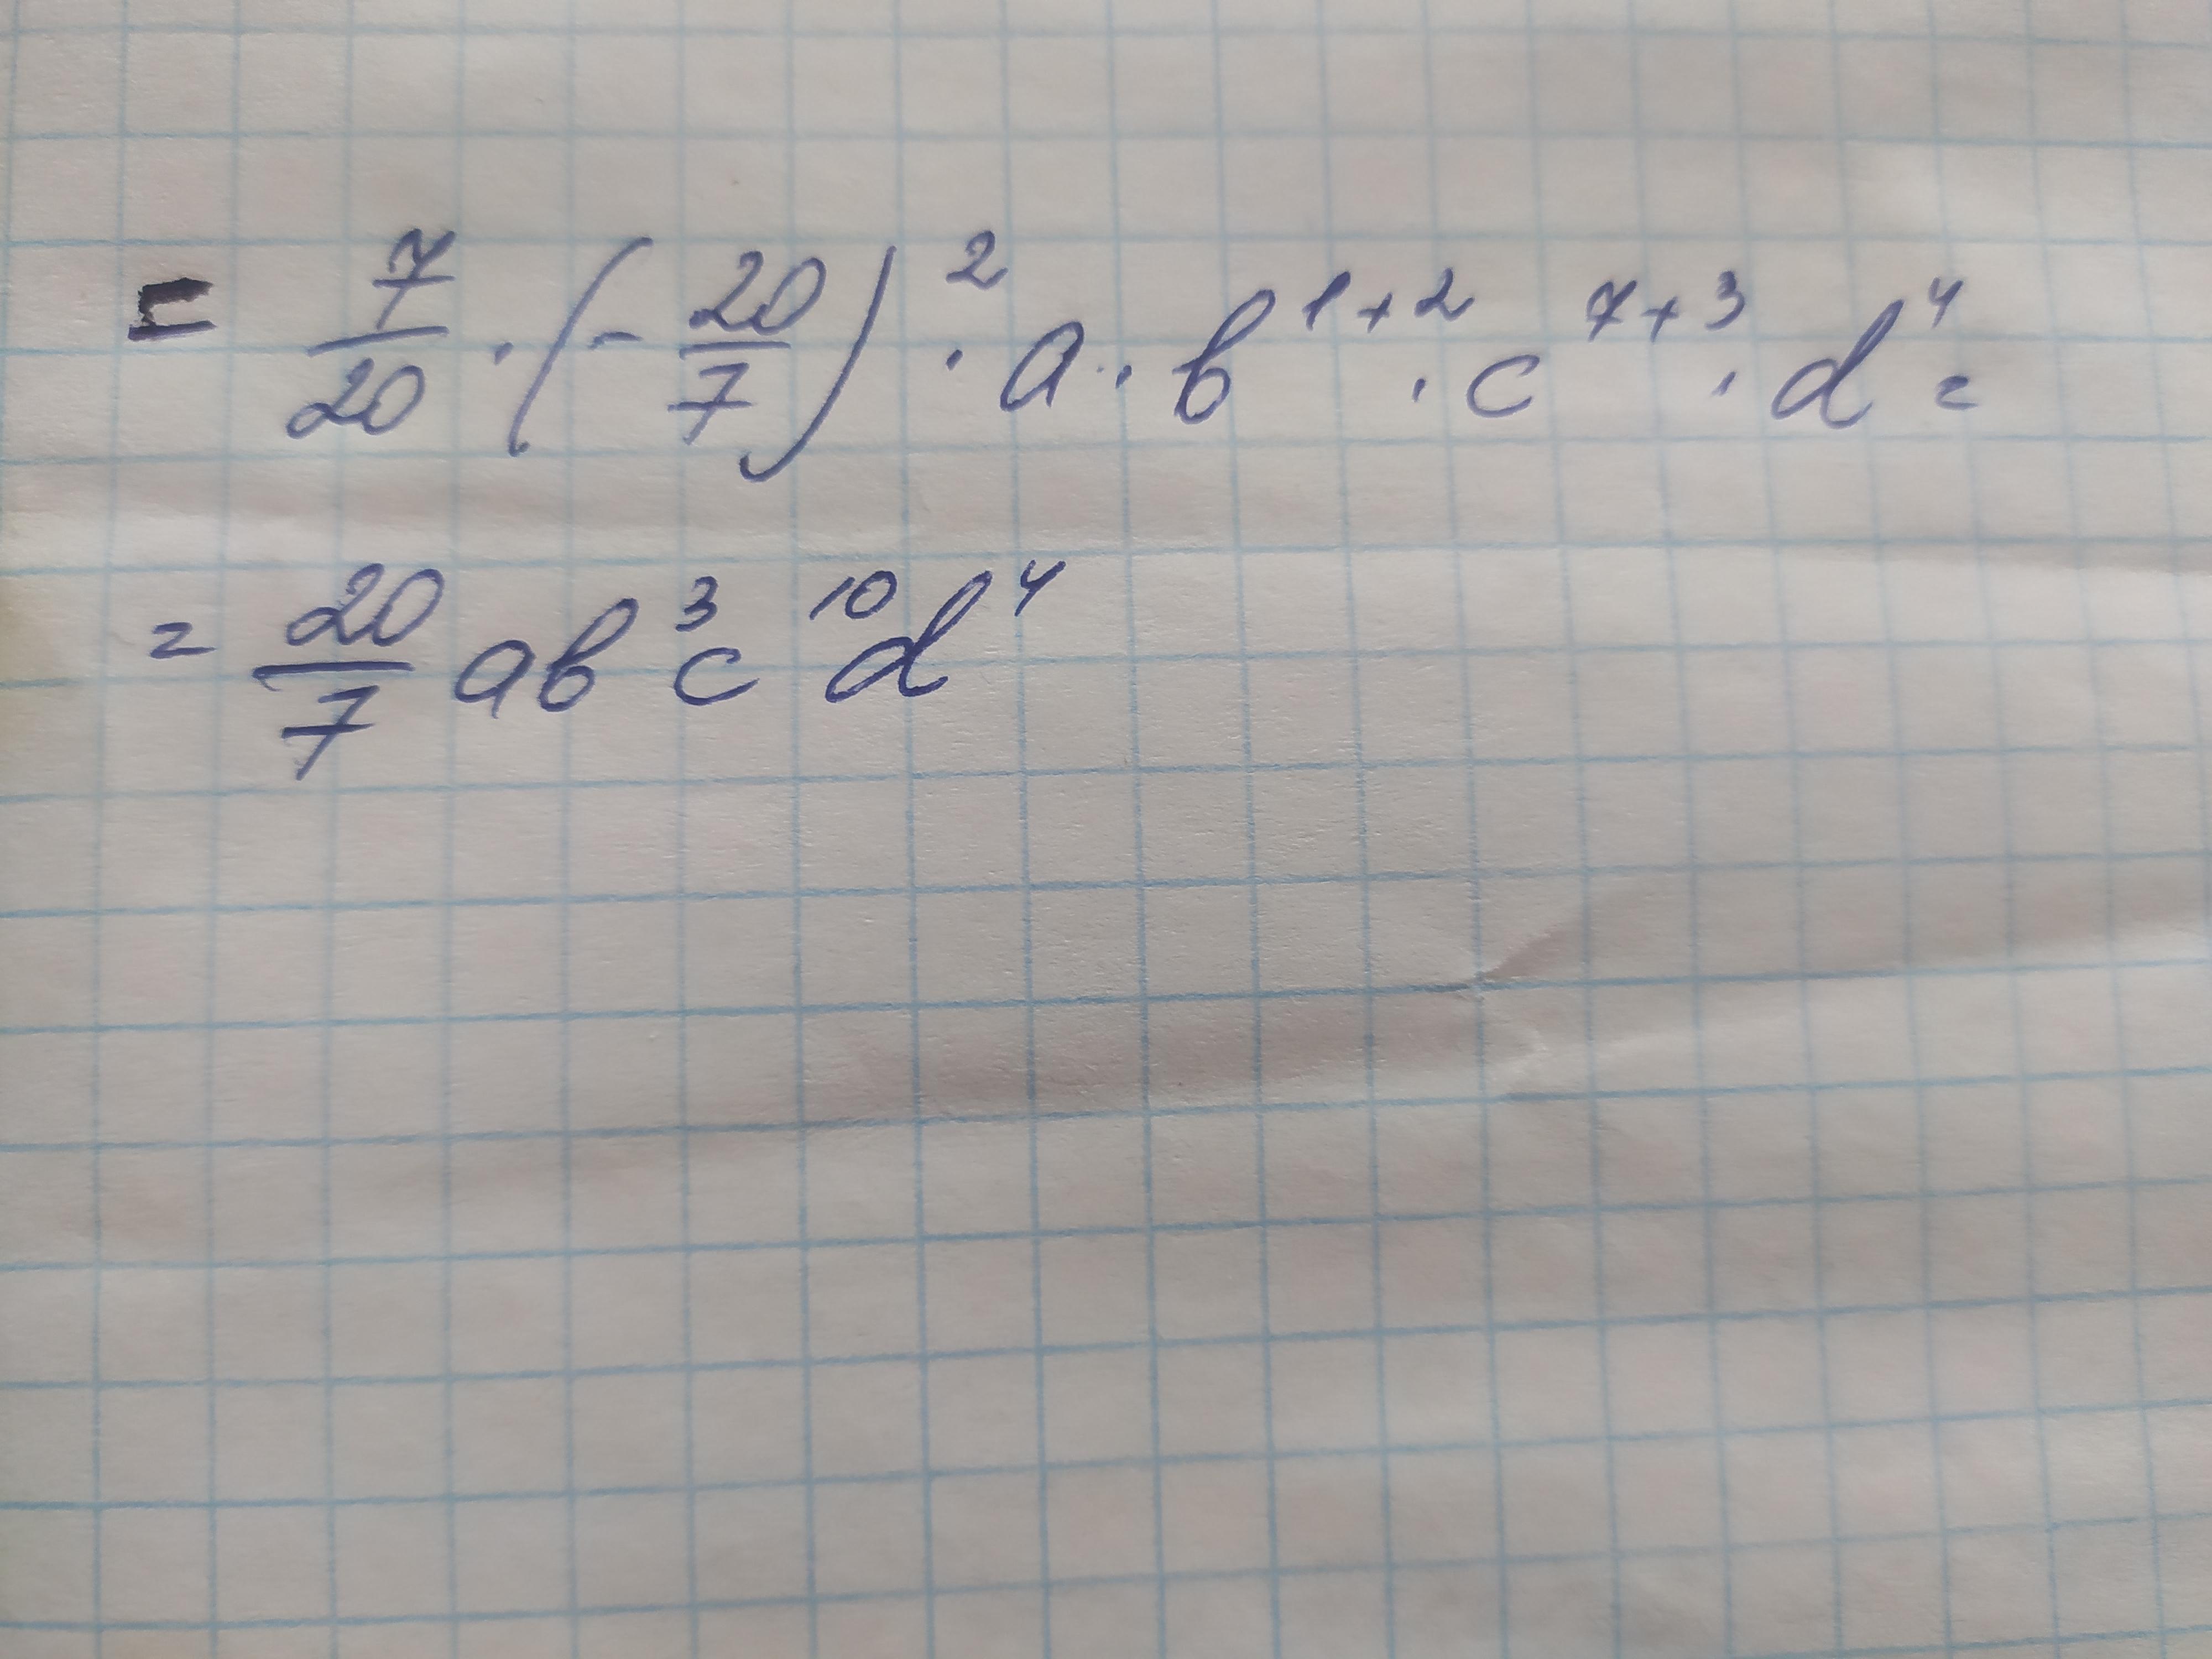 = 7/20 · (- 20/7)² · a · b¹⁺² · c⁷⁺³ · d⁴ =
= 20/7 ab³c¹⁰d⁴